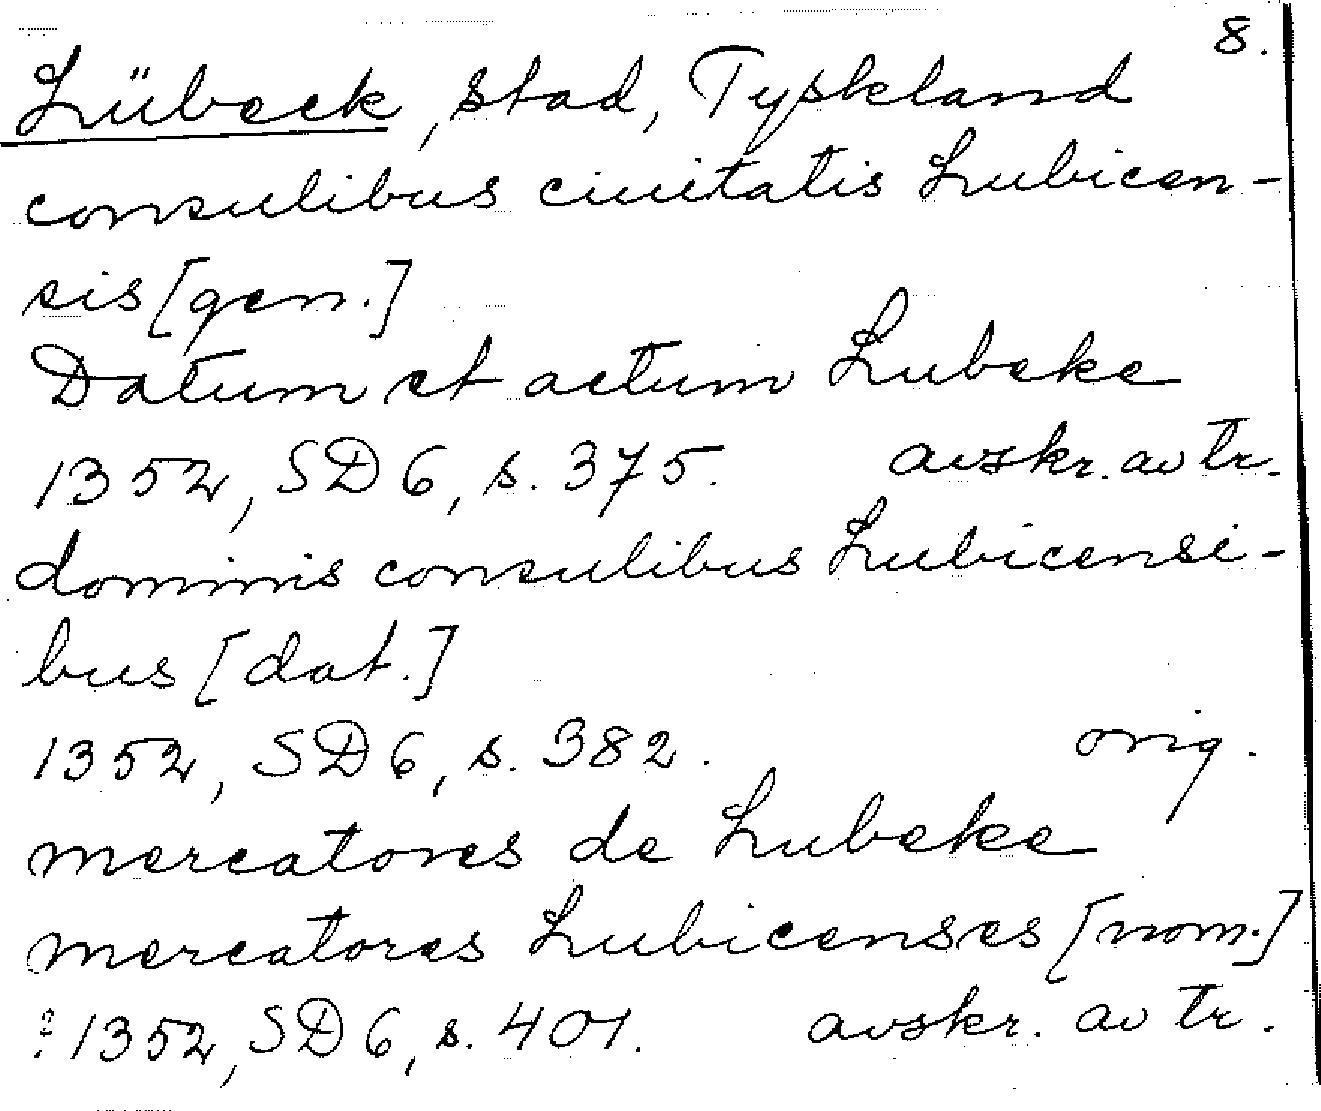 8.
Lübeck, stad, Tyskland
consulibus ciuitatis Lubicen-
sis [gen.]
Datum et actum Lubeke
1352, SD 6, s. 375. avskr. av tr.
dominis consulibus Lubicensi-
bus [dat.]
1352, SD 6, s. 382. orig.
mercatores de Lubeke
mercatores Lubicenses [nom.]
? 1352, SD 6, s. 401. avskr. av tr.